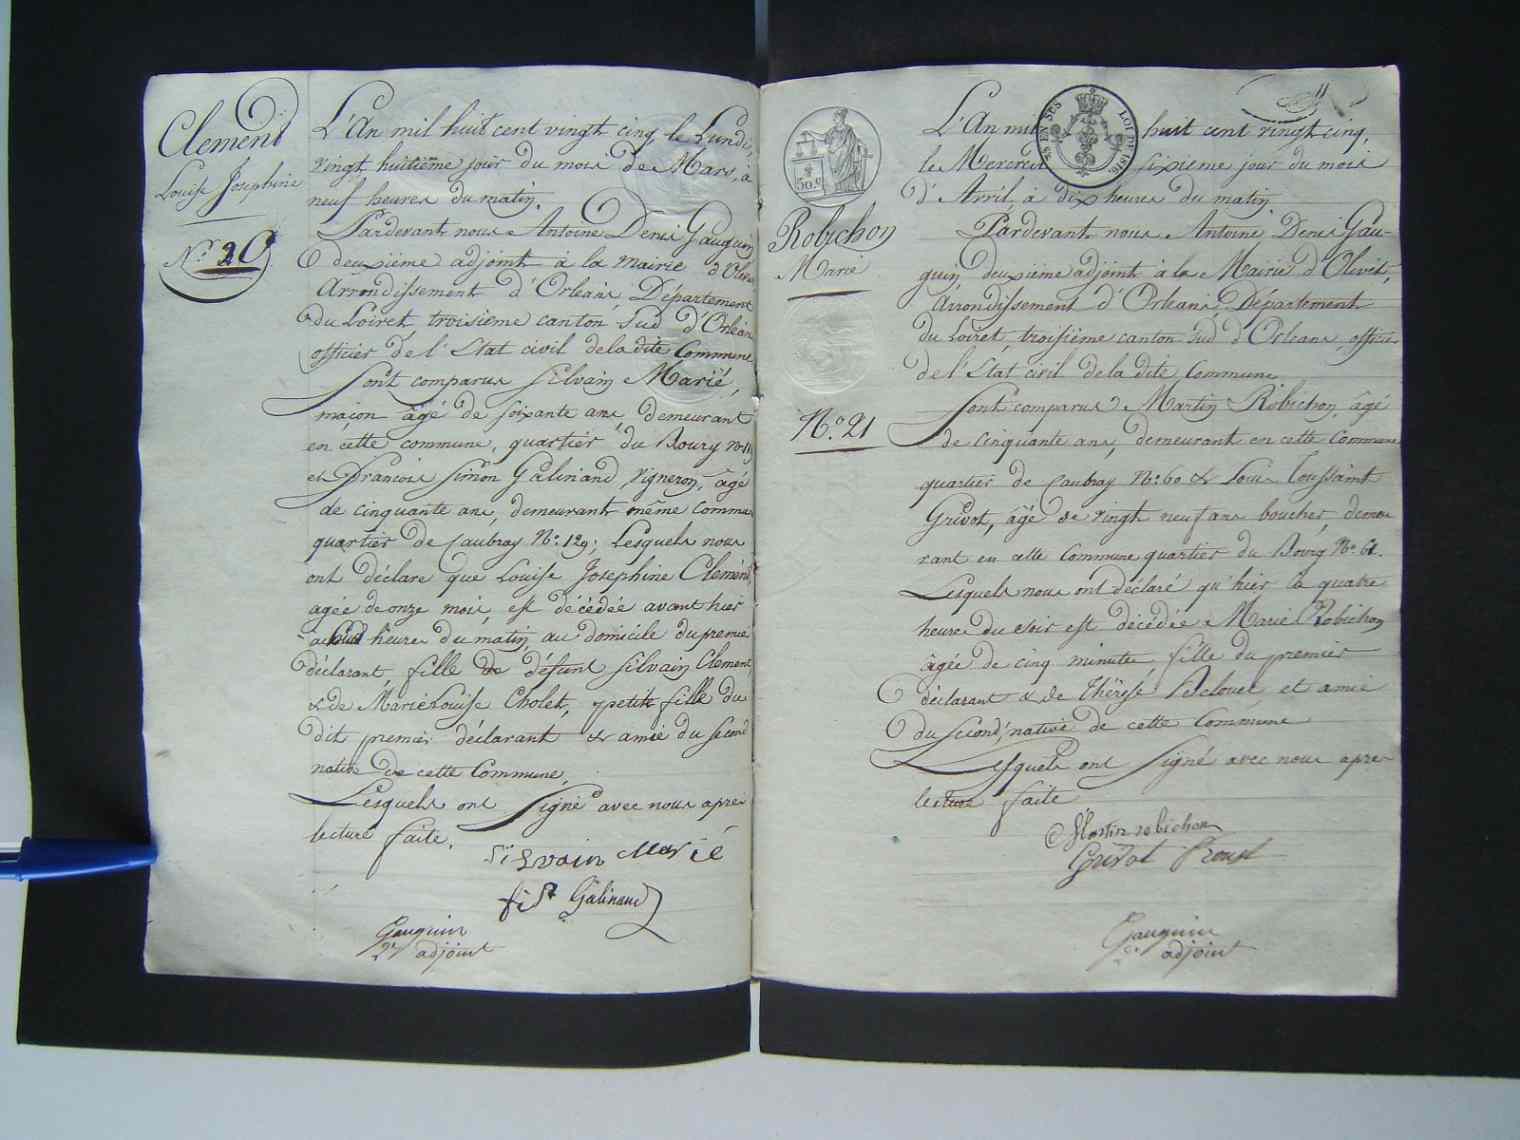 Clement
Louise Josephine
N.° 20
L'An mil huit cent vingt cinq, le Lundi,
vingt huitième jour du mois de Mars, à
neuf heures du matin.
Pardevant nous Antoine Denis Gauguin
deuxième adjoint à la mairie d'Olivet
Arrondissement d'Orleans, Département
du Loiret, troisième canton Sud d'Orléans
officier de l'Etat civil dela dite Commune
Sont comparus Silvain Marié,
maçon âgé de soixante ans, demeurant
en cette commune, quartier du Bourg
et François Simon Galinand, vigneron, âgé
de cinquante ans, demeurant même Commune
quartier de Caubray N.° 129; Lesquels nous
ont déclaré que Louise Josephine Clement,
agée de onze mois, est décédée avant hier
à huit heures du matin, au domicile du premier
déclarant, fille de défunt Silvain Clement,
& de Marie Louise Cholet, petite fille du
dit premier déclarant & amie du second
native de cette Commune,
Lesquels ont Signé avec nous après
lecture faite.
Silvain Marié
f s Galinand
Gauguin
2e adjoint
50.c
TS EN SUS
LOI DE 1816
11
Robichon
Marie
N.° 21
L'An mil huit cent vingt cinq,
le Mercredi sixieme jour du mois
d'Avril, à dix heures du matin
Pardevant nous Antoine Denis Gau-
guin, deuxième adjoint à la Mairie d'Olivet,
Arrondissement d'Orleans, Département
du Loiret, troisième canton Sud d'Orleans, officier
de l'Etat civil dela dite Commune
Sont comparus Martin Robichon, âgé
de cinquante ans, demeurant en cette Commune
quartier de Caubray N.° 60 & Louis Toussaint
Grivot, âgé de vingt neuf ans boucher, demeu
rant en cette Commune quartier du Bourg N.° 61.
Lesquels nous ont déclaré qu'hier à quatre
heures du soir est décédée Marie Robichon
âgée de cinq minutes, fille du premier
déclarant & de Thérèse Delouet et amie
du second, native de cette Commune
Lesquels ont Signé avec nous après
lecture faite
Martin robichon
Grivot Proust
Gauguin
2e adjoint